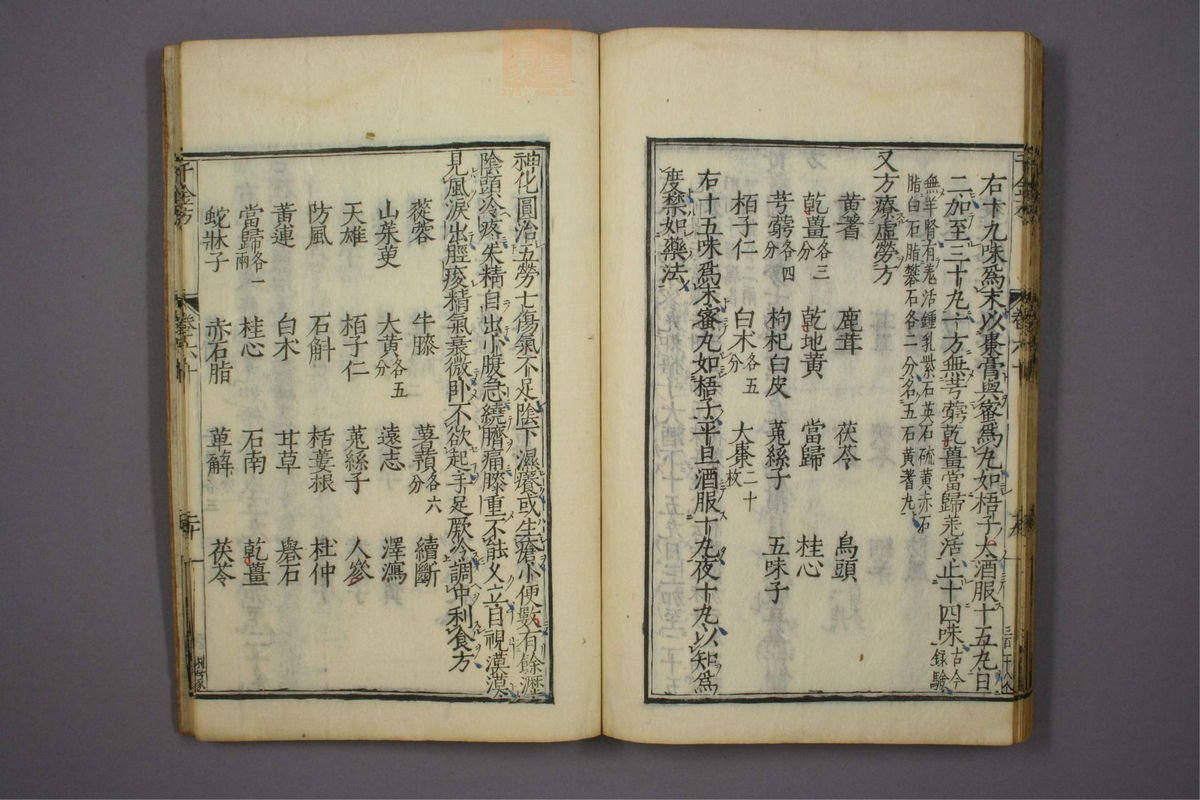 右十九味爲末以棗膏與蜜爲丸如梧子大酒服十五丸日
二加至三十丸一方無芎藭乾薑當歸羌活止十四味古今
錄驗
無羊腎有羌活鍾乳紫石英石硫黃赤石
脂白石脂礬石各二分名五石黃蓍丸
又方療虛勞方
黃蓍 鹿茸 茯苓 烏頭
乾薑各三 乾地黃 當歸 桂心
芎藭各四分 枸杞白皮 菟絲子 五味子
栢子仁 白朮各五分 大棗二十枚
右十五味爲末蜜丸如梧子平旦酒服十丸夜十丸以知爲
度禁如藥法
神化圓治五勞七傷氣不足陰下濕癢或生瘡小便數有餘瀝
陰頭冷疼失精自出小腹急繞臍痛膝重不能久立目視漠漠
見風淚出脛痠精氣衰微卧不欲起手足厥冷調中利食方
蓯蓉 牛膝 薯蕷各六分 續斷
山茱萸 大黃各五分 遠志 澤瀉
天雄 栢子仁 菟絲子 人參
防風 石斛 栝蔞根 杜仲
黃連 白朮 甘草 礜石
當歸各一兩 桂心 石南 乾薑
蛇牀子 赤石脂 萆薢 茯苓
千金方 卷六十 二十